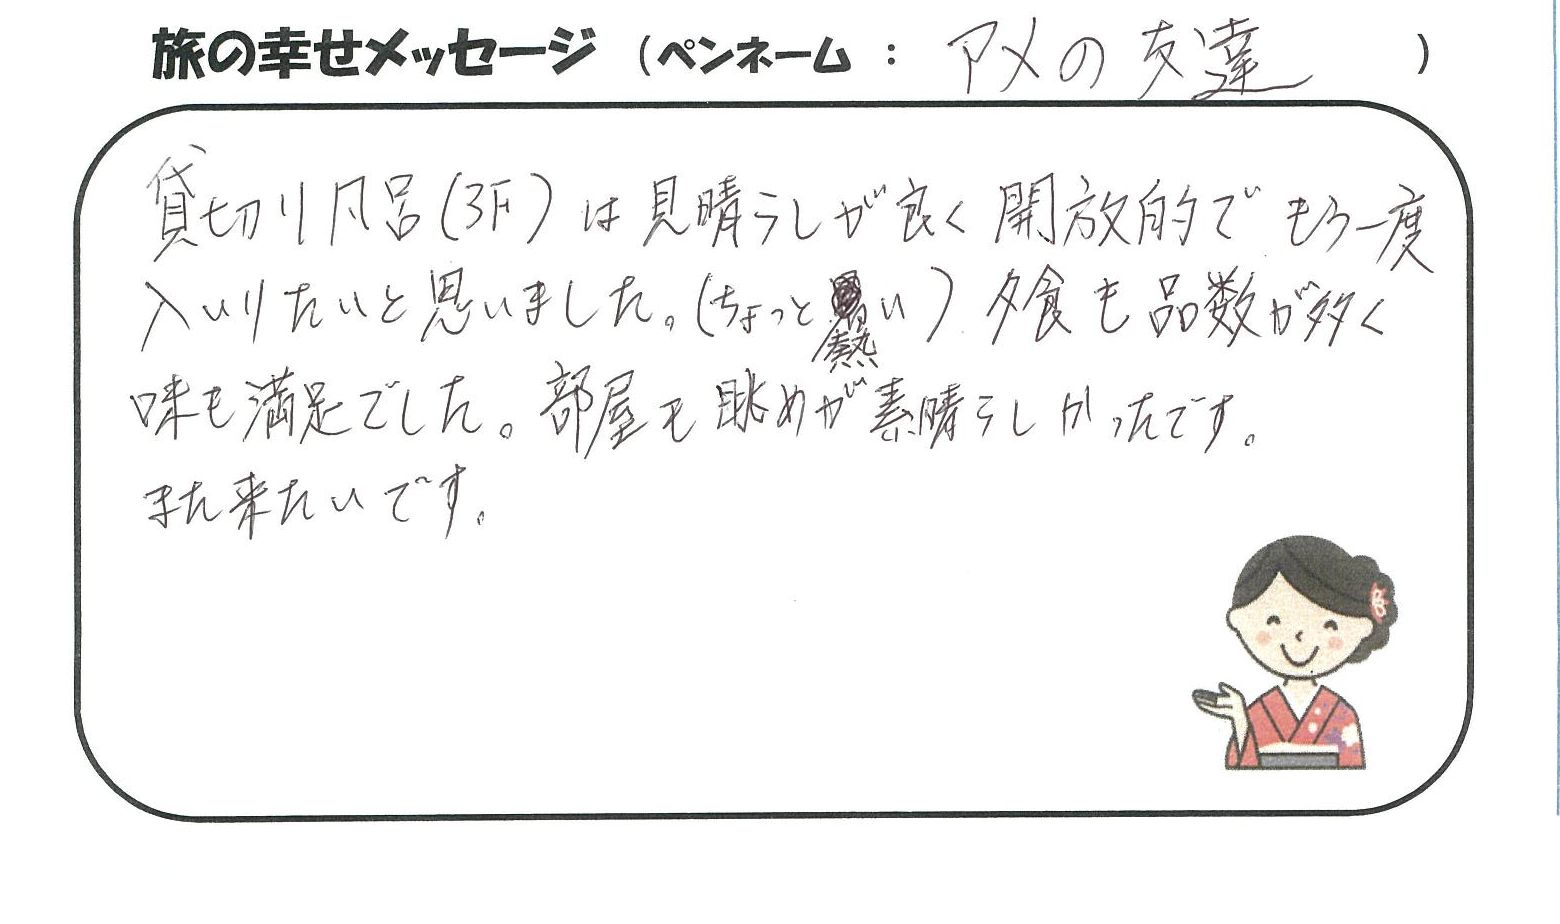 旅の幸せメッセージ（ペンネーム：アメの友達）
貸切り風呂(3F)は見晴らしが良く開放的でもう一度
入いりたいと思いました。(ちょっと熱い)夕食も品数が多く
味も満足でした。部屋も眺めが素晴らしかったです。
また来たいです。